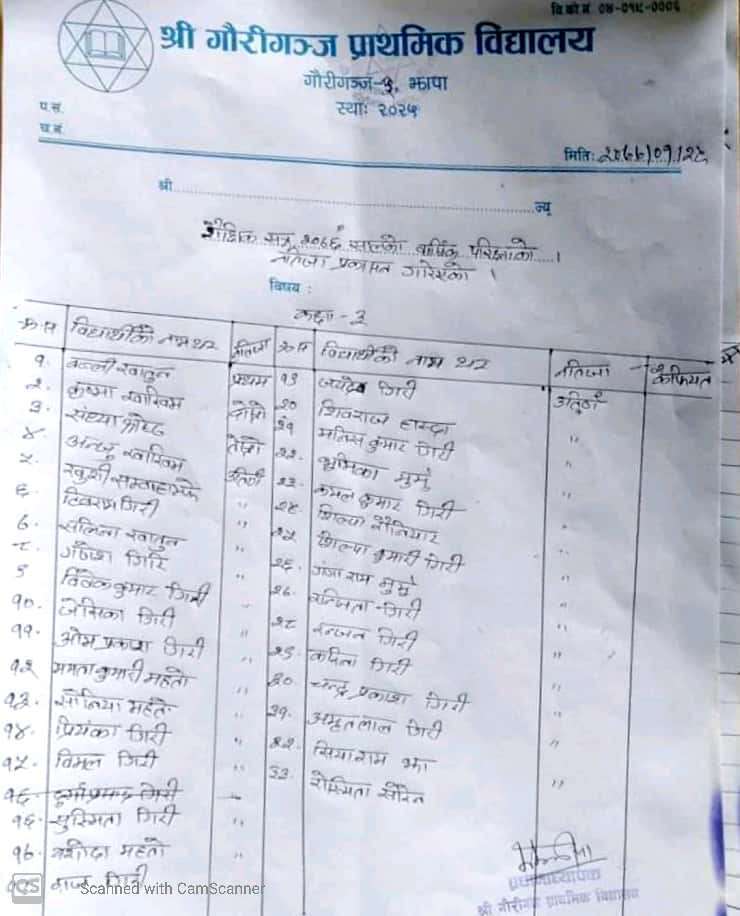 वि.को.नं. ०४-०१८-०००६
श्री गौरीगञ्ज प्राथमिक विद्यालय
गौरीगञ्ज-५, झापा
स्थाः २०२५
प.सं.
च.नं.
मितिः २०७७।०१।२८
श्री..........ज्यू
शैक्षिक सत्र २०७६ सालको बार्षिक परिक्षाको
नतिजा प्रकासन गरिएको ।
विषय :
कक्षा - ३
क्र.स विद्यार्थीको नाम थर नतिजा क्र.स विद्यार्थीको नाम थर नतिजा कैफियत
१. खातुन प्रथम १९ जयदेव गिरी उतिर्ण
२. कृष्मा खत्रिम दोस्रो २० शिवराज हास्दा "
३. संध्या श्रेष्ठ तेस्रो २१ मनिस कुमार गिरी "
४ अन्जु खत्रिम उतिर्ण २२. भूमिका मुर्मु "
५. खुशी " २३. कमल कुमार गिरी "
६. टिकाराम गिरी " २४. शिल्पा "
७. सलिना खातुन " २५. शिल्पा कुमारी गिरी "
८. गणेश गिरि " २६. गंगा राम मुर्मु "
९ विवेक कुमार गिरी " २७. रन्जिता गिरी "
१०. जेसिका गिरी " २८ रन्जन गिरी "
११. ओम प्रकाश गिरी " २९. कविता गिरी "
१२ ममता कुमारी महतो " ३०. चन्द्र प्रकाश गिरी "
१३. सोनिया महतो " ३१. अमृतलाल गिरी "
१४. प्रियंका गिरी " ३२. सियाराम झा "
१५. विमल गिरी " ३३. रोस्मिता सोरेन "
१६. दुर्गा प्रसाद गिरी -
१६. सुस्मिता गिरी "
१७. यशोदा महतो "
राज गिरी
प्रधानाध्यापक
श्री गौरीगञ्ज प्राथमिक विद्यालय
CS Scanned with CamScanner